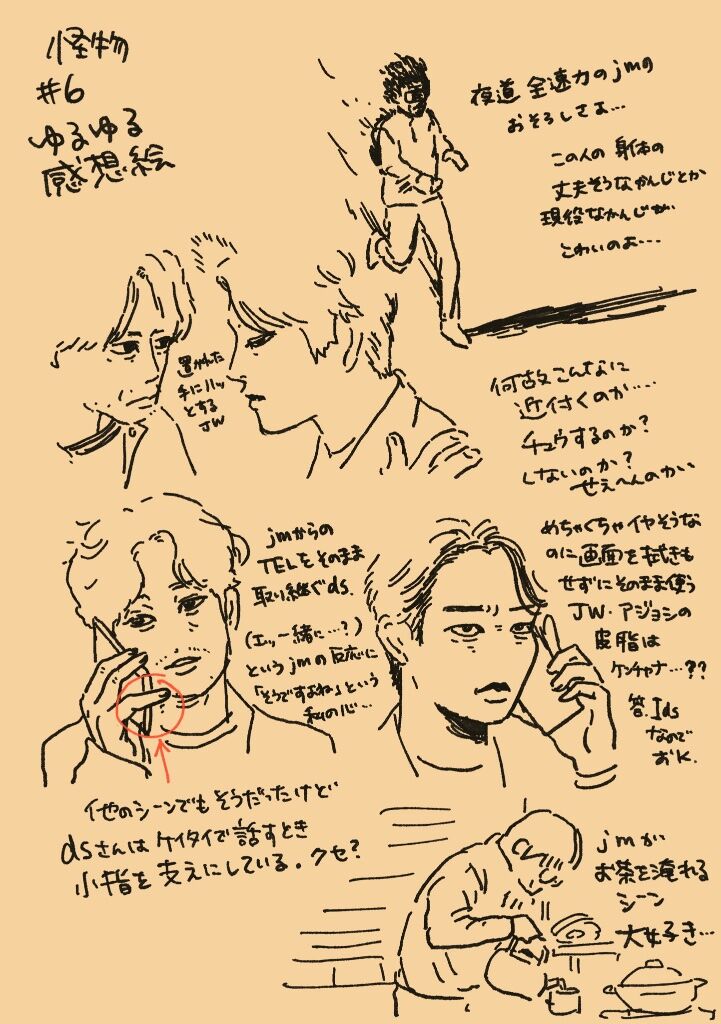 怪物
#6
ゆるゆる
感想絵
夜道 全速力のjmの
おそろしさよ…
この人の 身体の
丈夫そうなかんじとか
現役なかんじが
こわいのよ…
置かれた
手にハッ
とする
JW
何故こんなに
近付くのか……
チュウするのか?
しないのか?
せえへんのかい
jmからの
TELをそのまま
取り継ぐds.
(エッ一緒に…?)
というjmの反応に
「そうですよね」という
私の心…
めちゃくちゃイヤそうな
のに画面を拭きも
せずにそのまま使う
JW・アジョシの
皮脂は
ケンチャナ…??
答.Ids
なので
おK.
他のシーンでもそうだったけど
dsさんはケイタイで話すとき
小指を支えにしている。クセ?
jmが
お茶を淹れる
シーン
大好き…